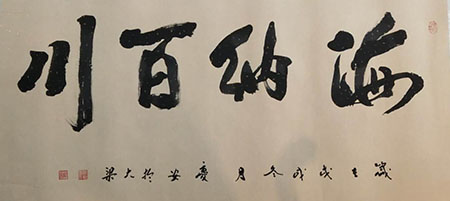 海纳百川
岁在戊戌冬月庆安於大梁